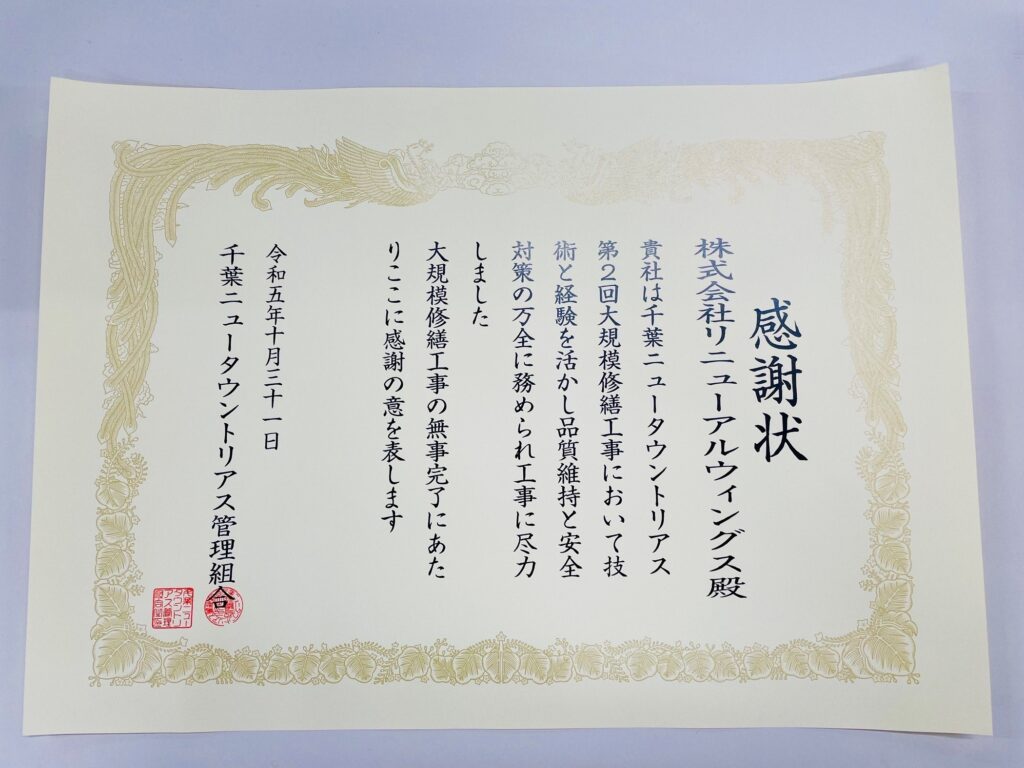 感謝状
株式会社リニューアルウィングス殿
貴社は千葉ニュータウントリアス
第2回大規模修繕工事において技
術と経験を活かし品質維持と安全
対策の万全に務められ工事に尽力
しました
大規模修繕工事の無事完了にあた
りここに感謝の意を表します
令和五年十月三十一日
千葉ニュータウントリアス管理組合